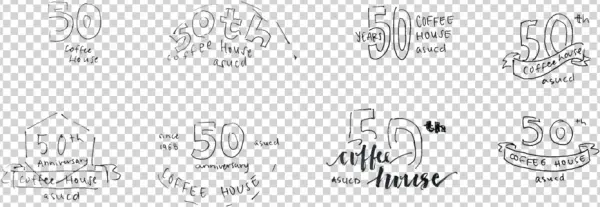 50
Coffee
House
50th
coffee House
asucd
YEARS 50 COFFEE
HOUSE
asucd
50th
coffee house
asucd
50th
Anniversary
Coffee House
asucd
since
1968
50
asucd
anniversary
COFFEE HOUSE
50th
coffee
ASUCD house
50th
COFFEE HOUSE
asucd